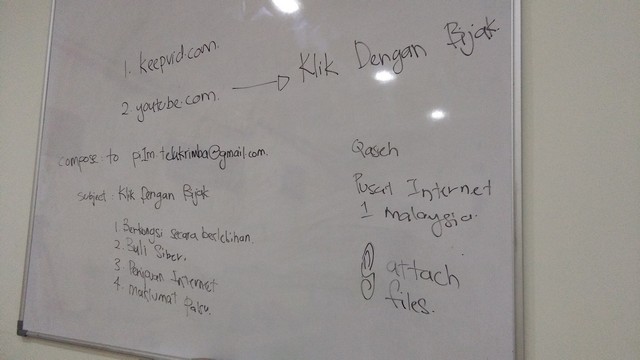 1. keepvid.com.
2. youtube.com. → Klik Dengan Bijak.
compose to p1m.telukrimba@gmail.com.
subject: Klik Dengan Bijak
1. Berkongsi secara berlebihan.
2. Buli Siber.
3. Penipuan Internet
4. maklumat Palsu.
Qaseh
Pusat Internet
1 malaysia.
attach
files.